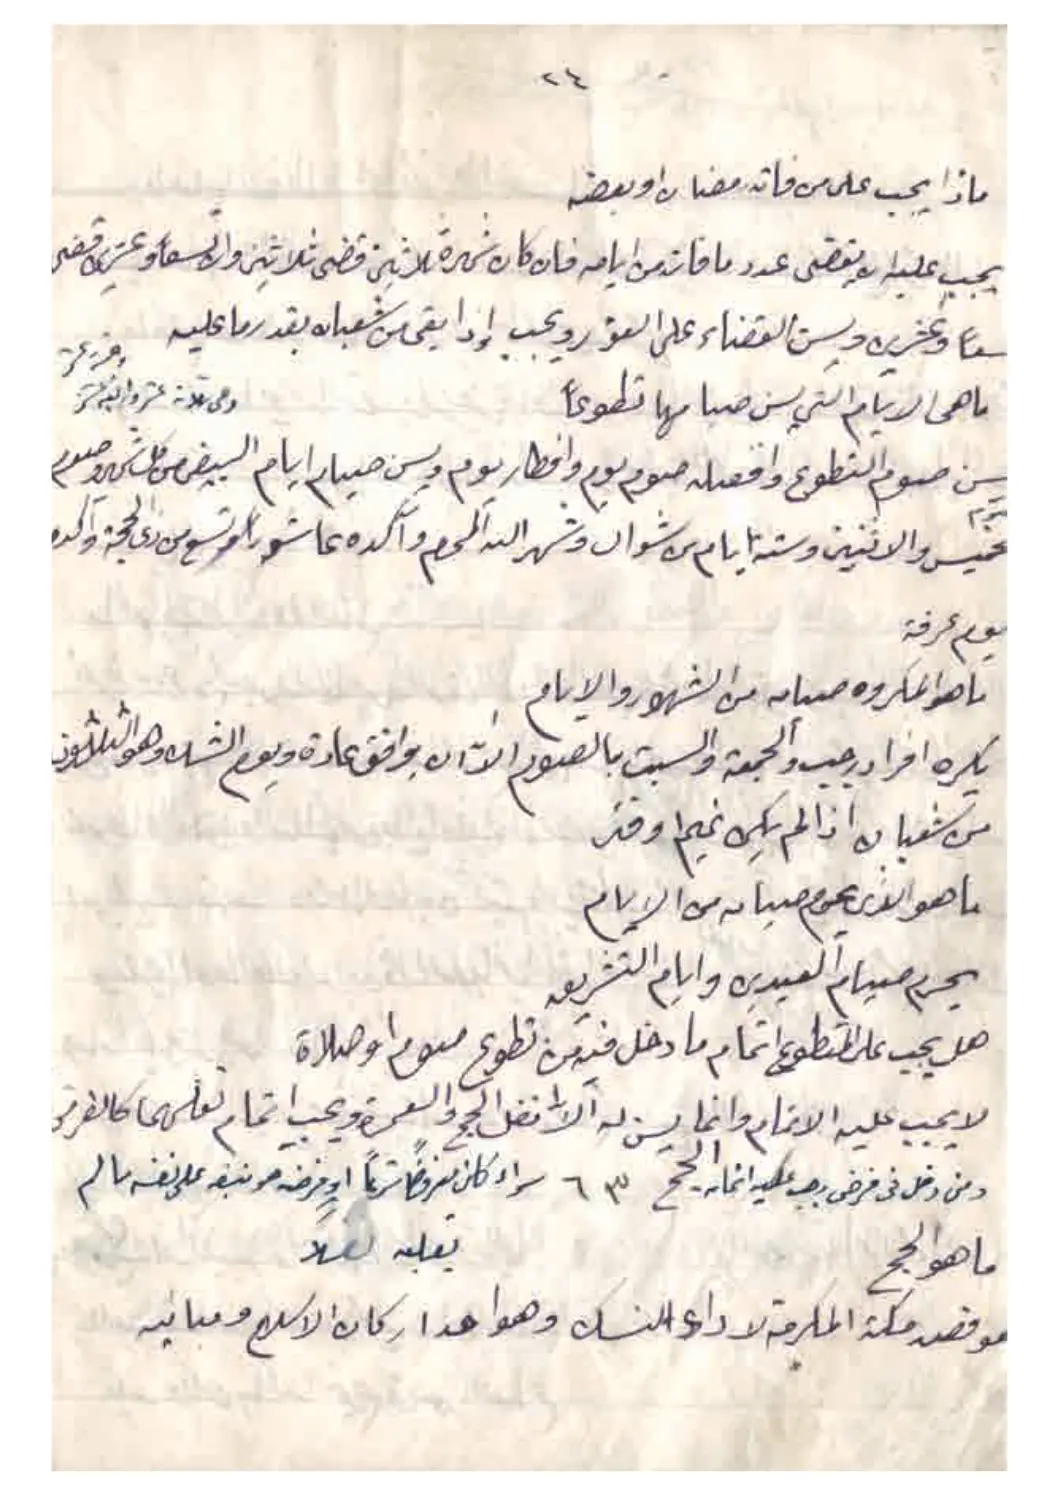 ٢٤
ماذا يجب على من فاته رمضان او بعضه
يجب عليه ان يقضي عدد ما فاته من ايامه فان كان شهره ثلاثين قضى ثلاثين وان تسعاً وعشرين قضى
تسعاً وعشرين ويسن القضاء على الفور ويجب إذا بقي من شعبان بقدر ما عليه
ما هي الايام التي يسن صيامها تطوعاً
وهي ثلاثة عشر واربعة عشر
وخمسة عشر
يسن صوم التطوع وافضله صوم يوم وافطار يوم ويسن صيام ايام البيض من كل شهر وصوم
خميس والاثنين وستة ايام من شوال وشهر الله المحرم وآكده عاشوراء وتسع من ذي الحجة وآكده
يوم عرفة
ما هو المكروه صيامه من الشهور والايام
يكره افراد رجب والجمعة والسبت بالصوم الا ان يوافق عادة ويوم الشك وهو الثلاثون
من شعبان اذا لم يكن غيم او قتر
ما هو الذي يحرم صيامه من الايام
يحرم صيام العيدين وايام التشريق
هل يجب على المتطوع اتمام ما دخل فيه من تطوع صوم او صلاة
لا يجب عليه الاتمام وانما يسن له الا نفل الحج والعمرة ويجب اتمام نفلهما كالفرض
ومن دخل في فرض وجب عليه اتمامه سواء كان مفروضاً شرعاً او فرضه هو بنفسه على نفسه ما لم
يقلبه نفلاً
الحج
ما هو الحج
هو قصد مكة المكرمة لاداء النسك وهو احد اركان الاسلام ومبانيه